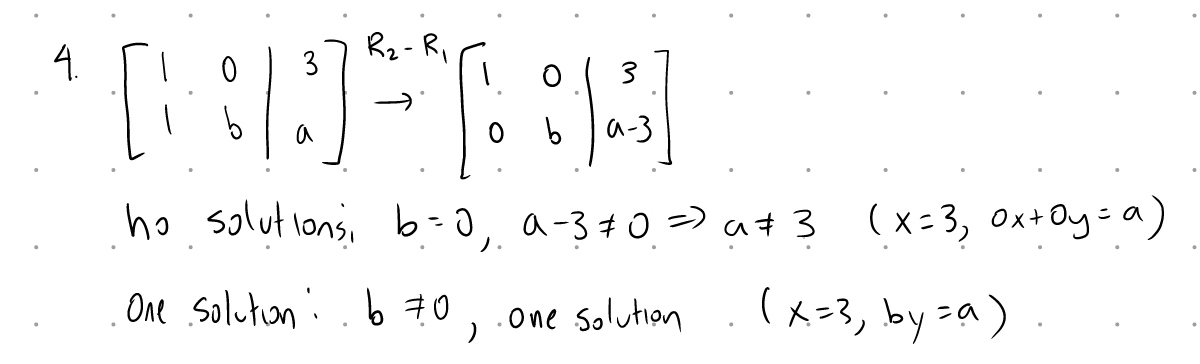 4. [1 0 | 3
1 b | a] R₂-R₁ → [1 0 | 3
0 b | a-3]
no solutions, b=0, a-3≠0 => a≠3 (x=3, 0x+0y=a)
One solution: b≠0, one solution (x=3, by=a)